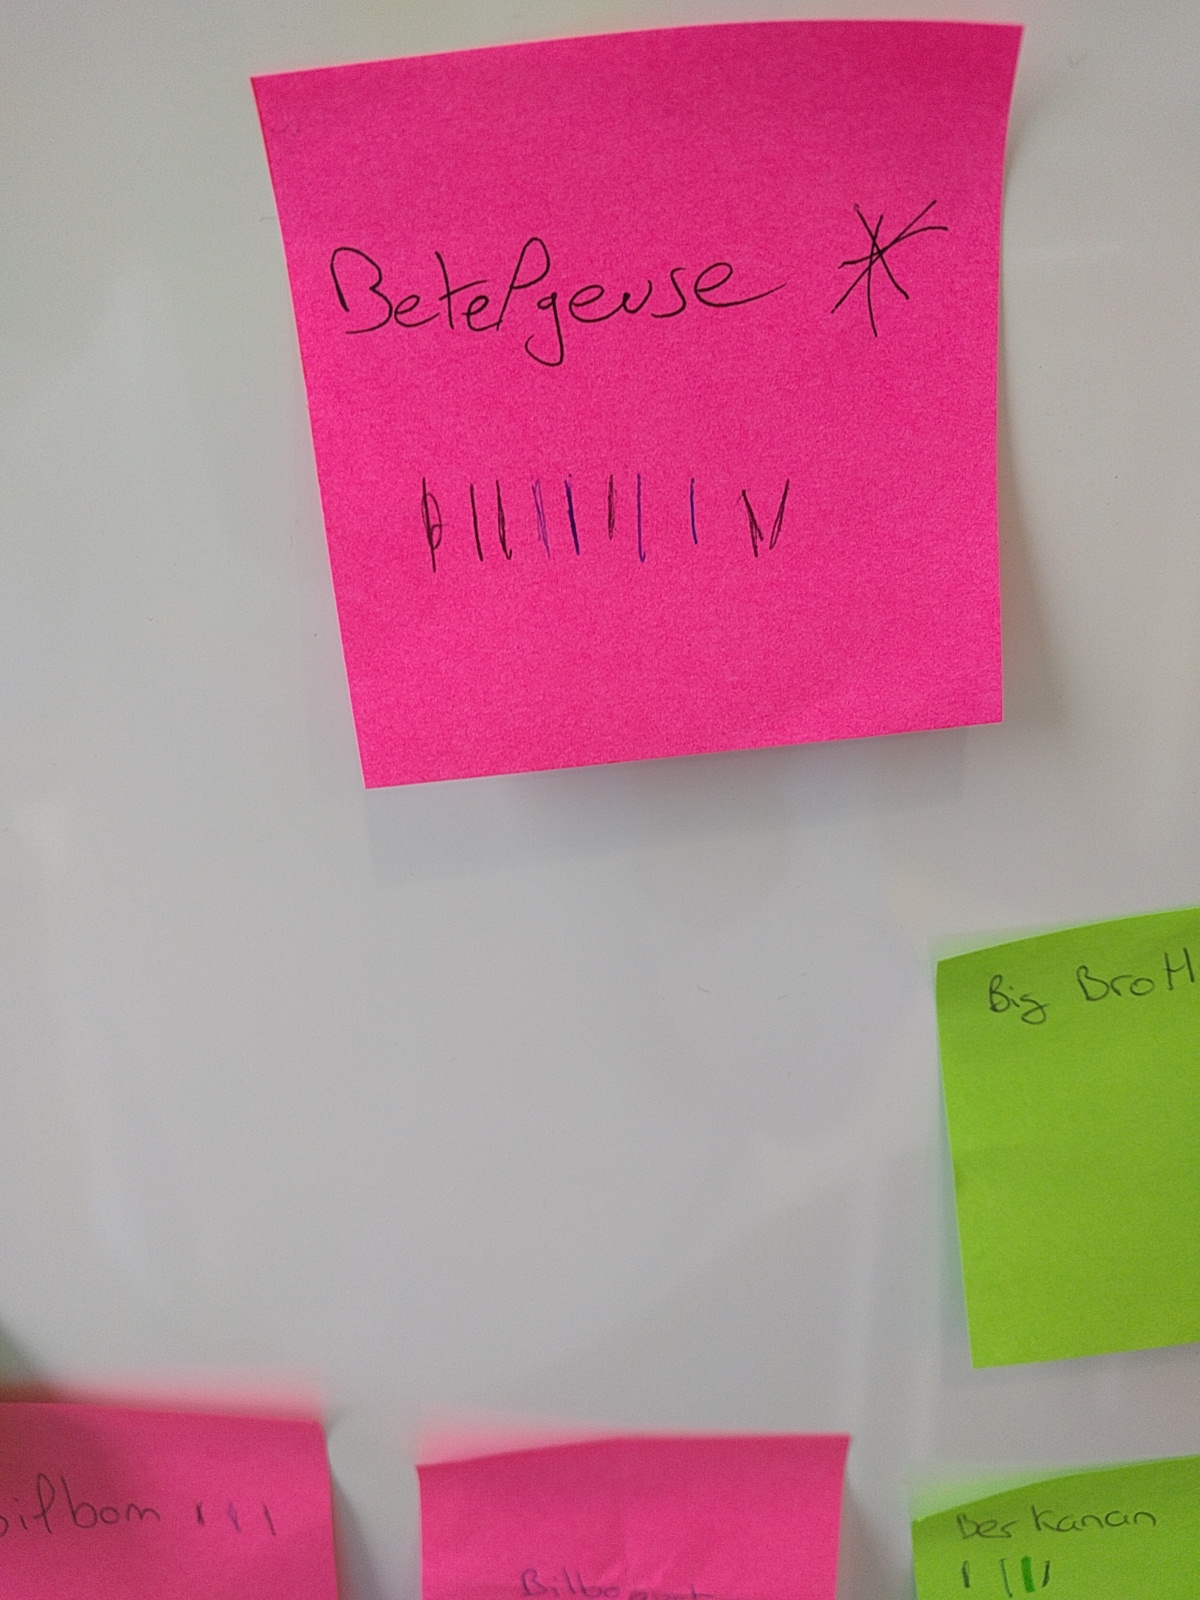 Betelgeuse
Big Brot
bilbom
Berkanan